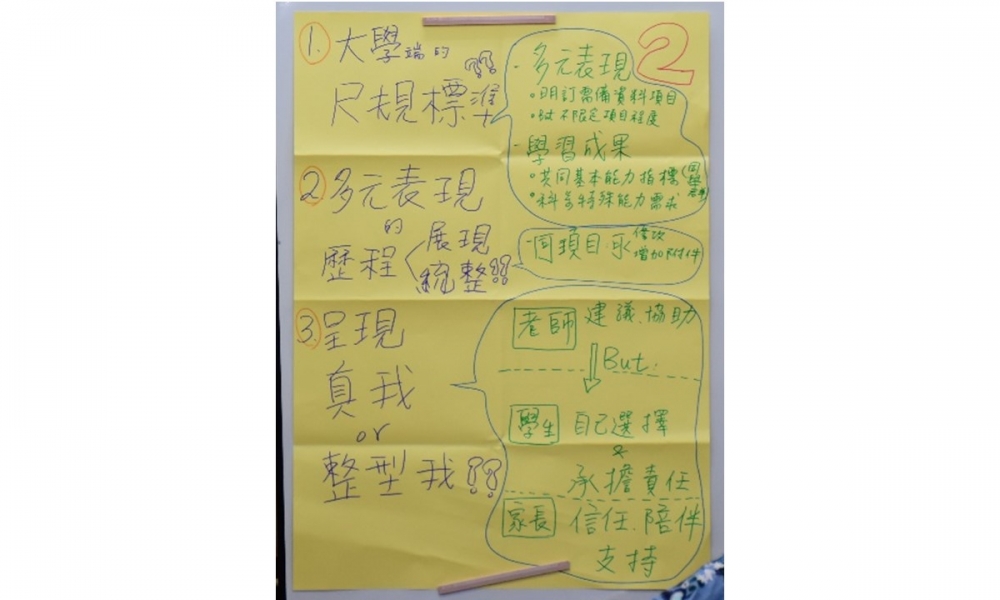 2
1. 大學端的
尺規標準??
·多元表現
。明訂需備資料項目
。but 不限定項目程度
·學習成果
。共同基本能力指標
。科系特殊能力需求
2 多元表現
的
歷程<展現
統整??
·同項目
修改
增加附件
3. 呈現
真我
or
整型我??
老師 建議、協助
But:
學生 自己選擇
&
承擔責任
家長 信任、陪伴
支持